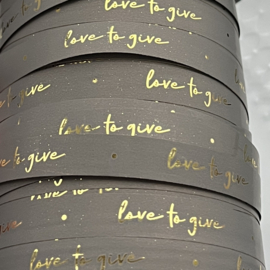 love to give
love to give
love to give
love to give
love to give
love to give
love to give
love to give
love to give